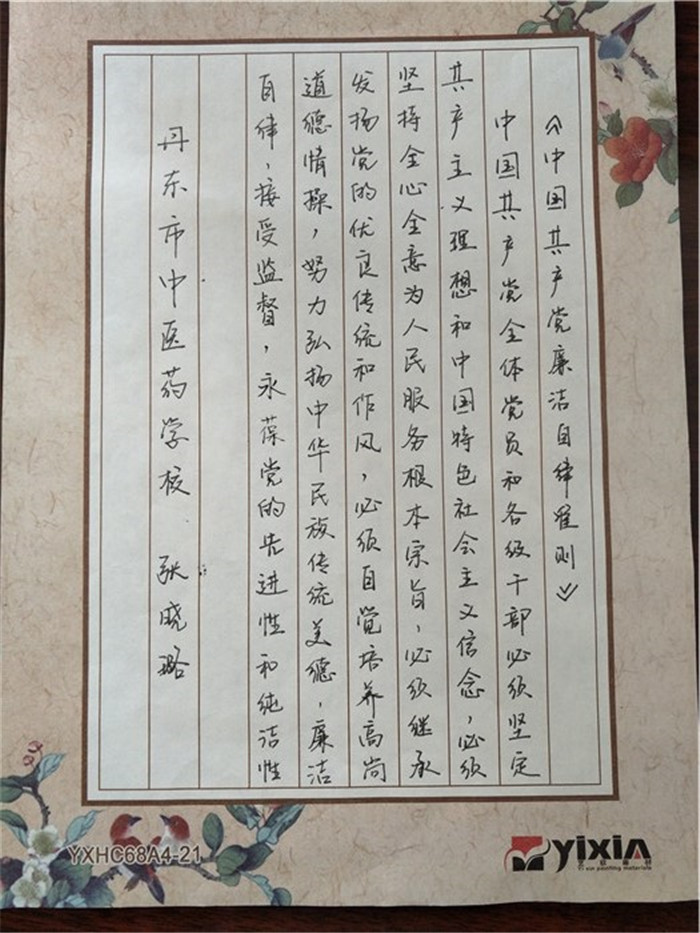 《中国共产党廉洁自律准则》
中国共产党全体党员和各级干部必须坚定
共产主义理想和中国特色社会主义信念，必须
坚持全心全意为人民服务根本宗旨，必须继承
发扬党的优良传统和作风，必须自觉培养高尚
道德情操，努力弘扬中华民族传统美德，廉洁
自律，接受监督，永葆党的先进性和纯洁性
丹东市中医药学校 张晓璐
YXHC68A4-21
yixin
Yi xin painting materials